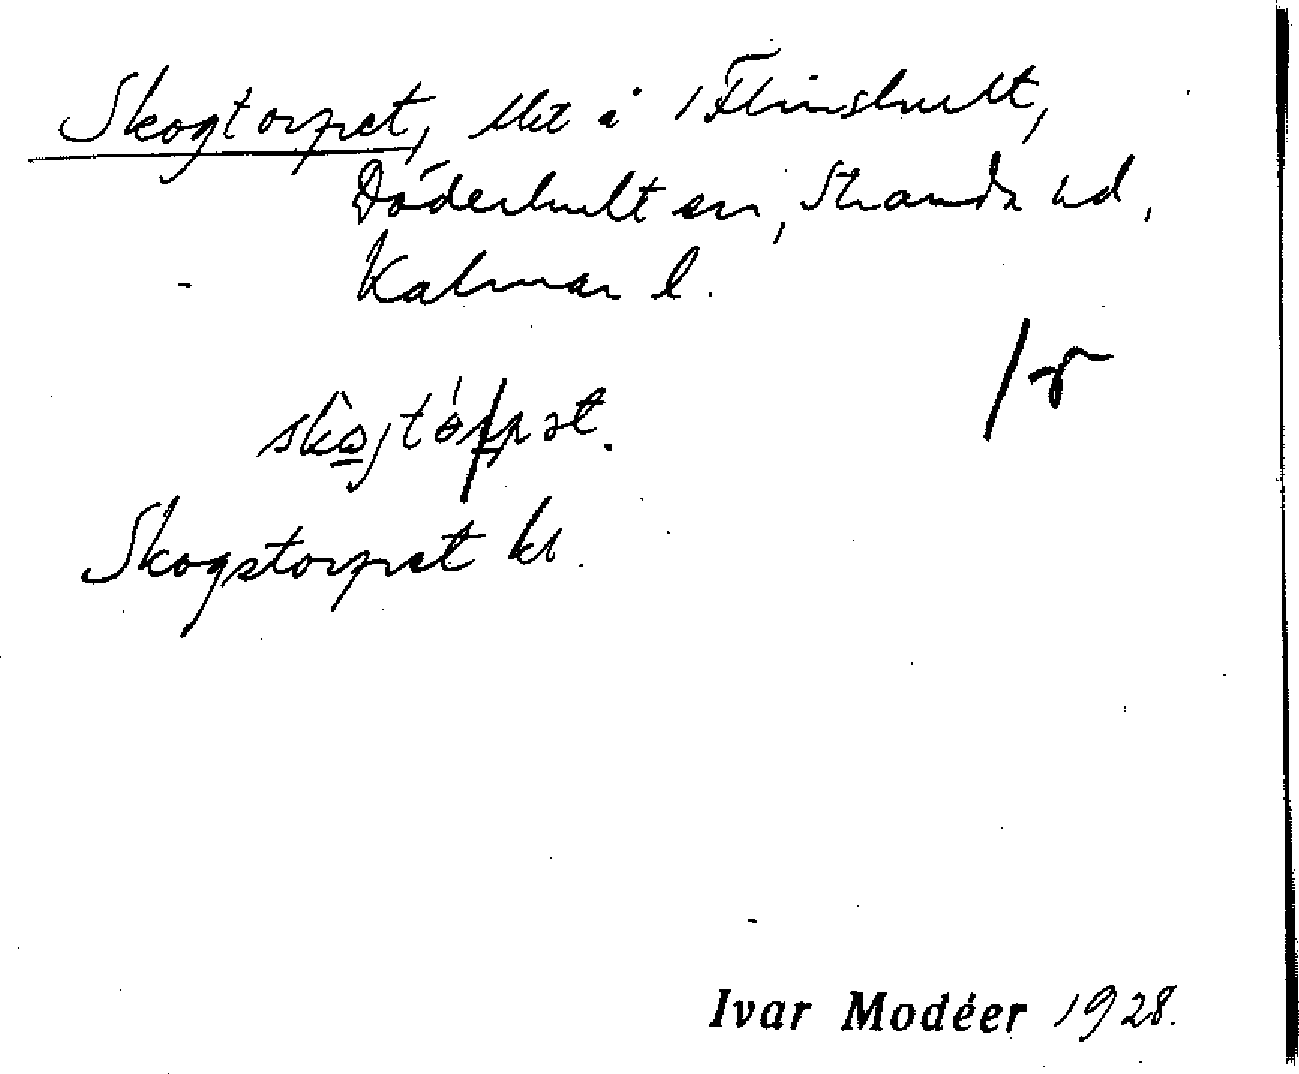 Skogtorpet, lht å Flinshult,
Döderhult sn, Stranda hd,
Kalmar l.
Skogstorpet kb.
Ivar Modéer 1928.